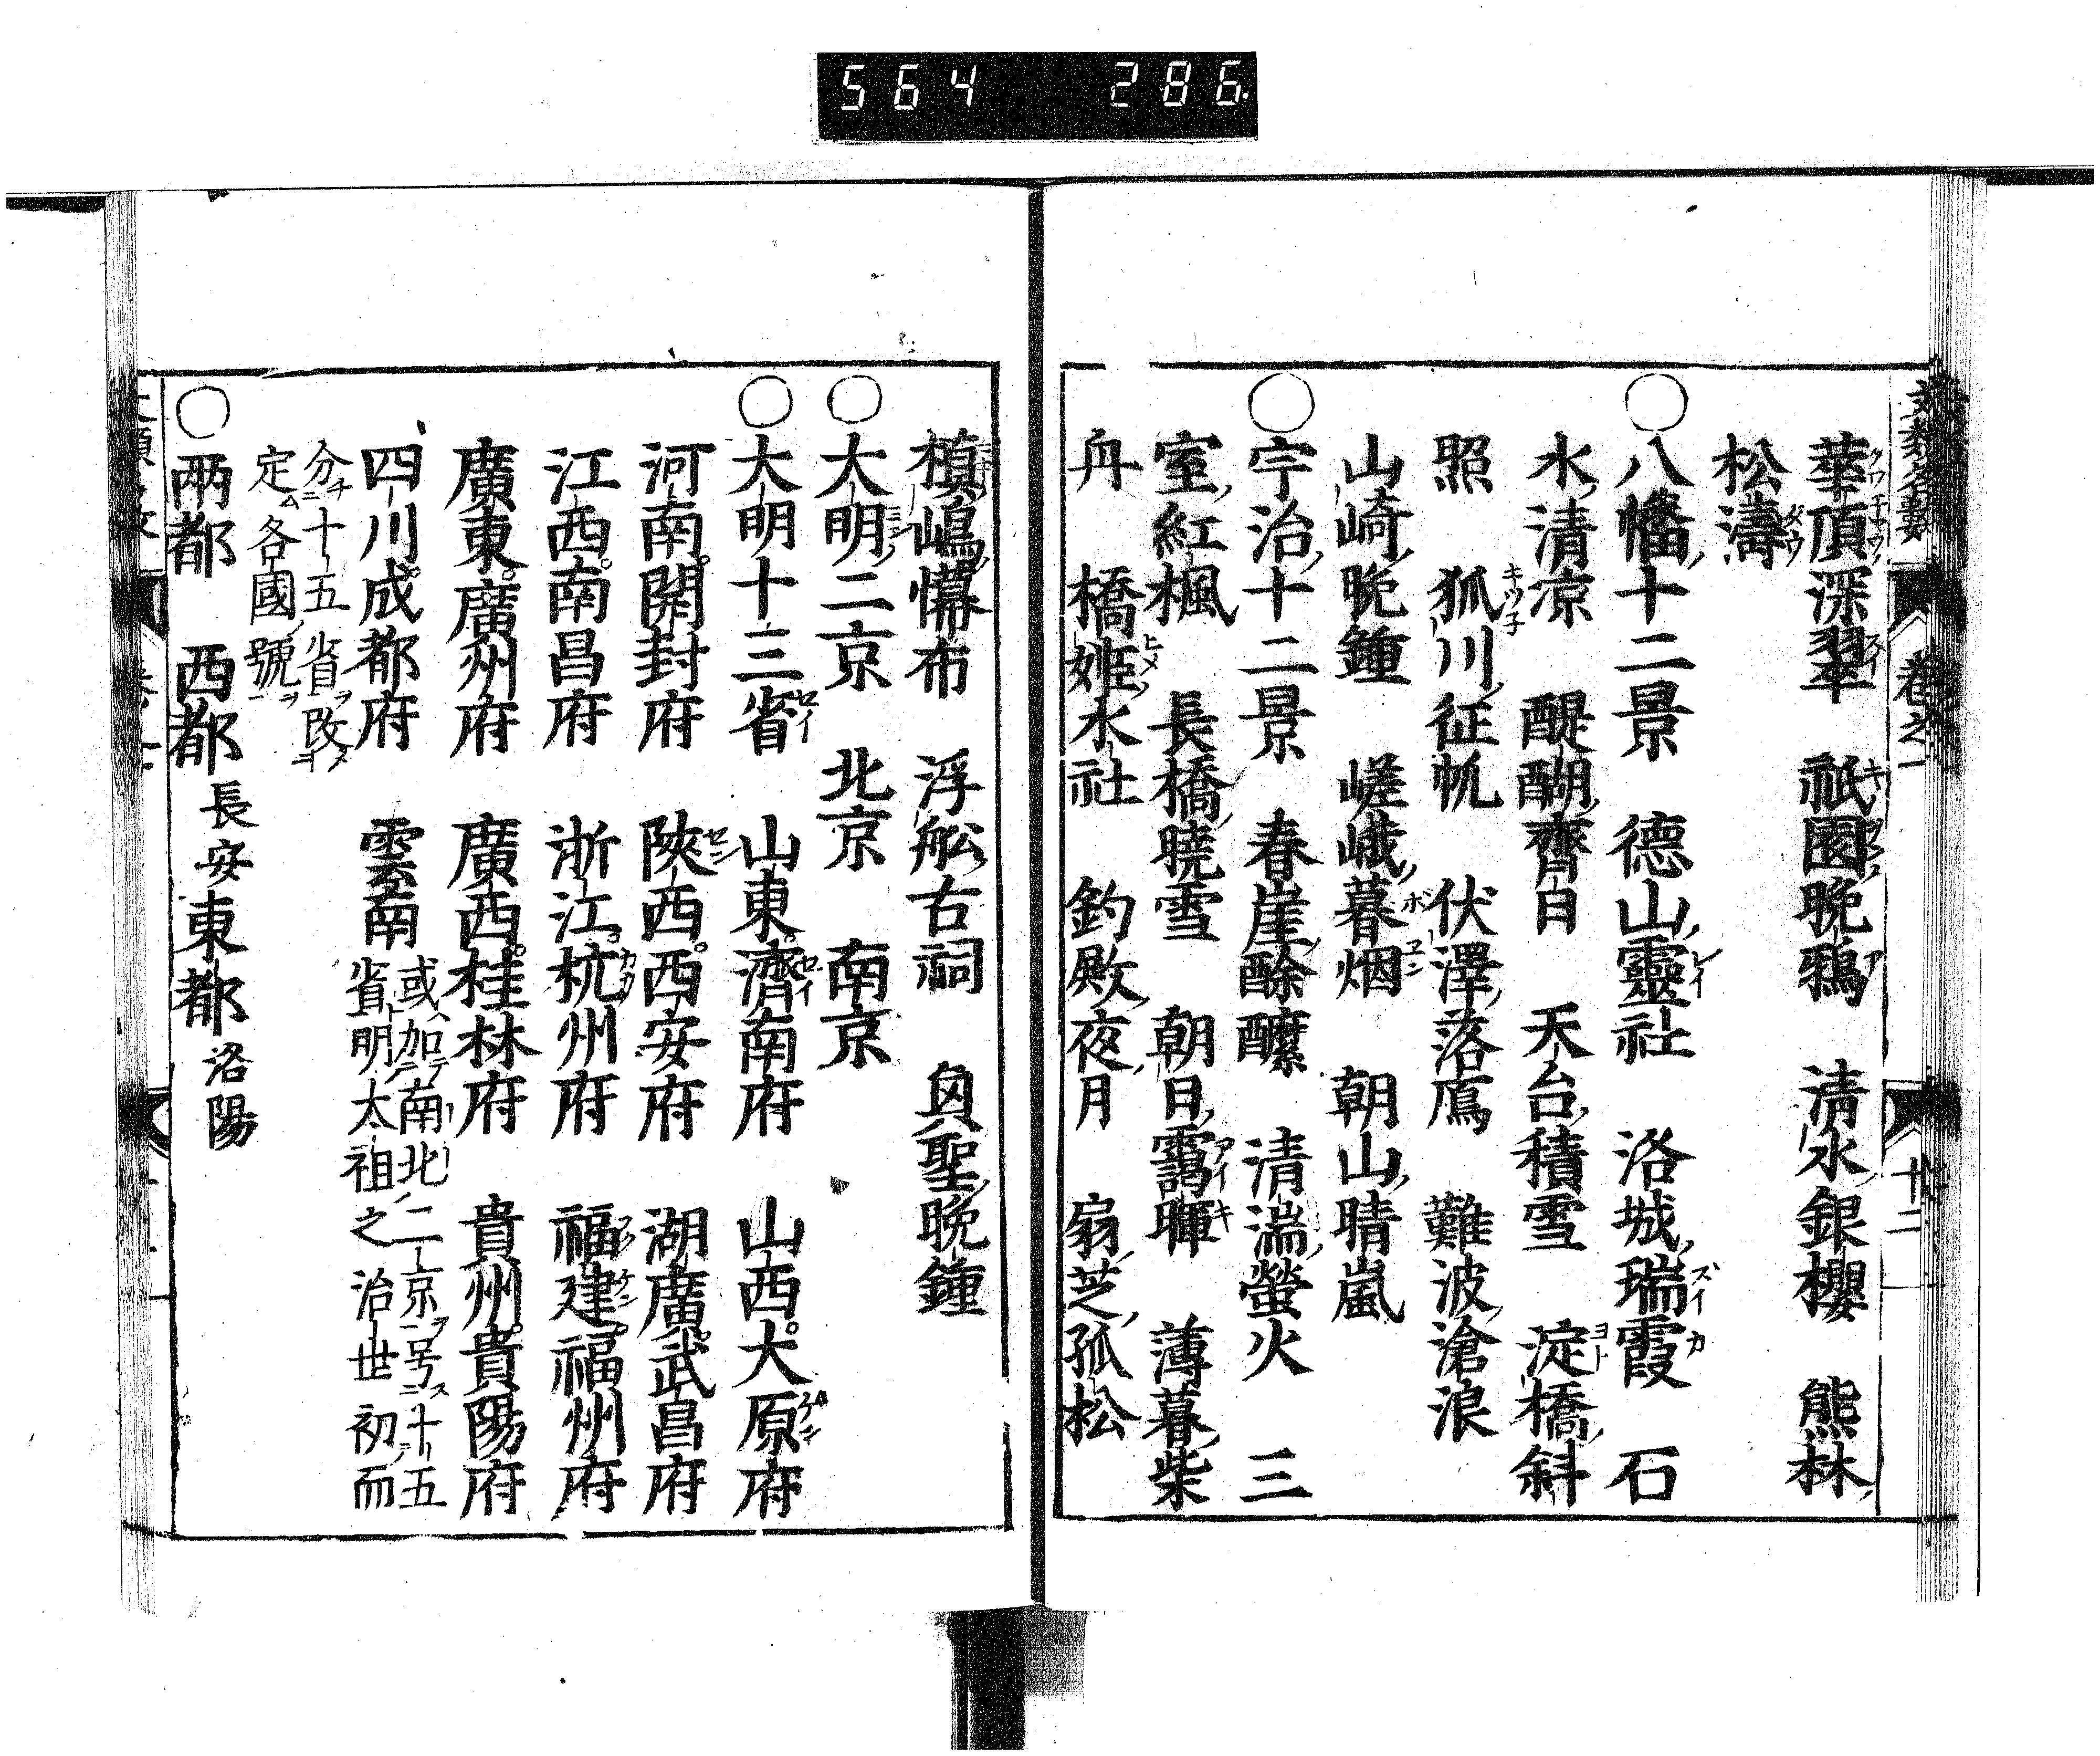 564 286
卷之一 十二
華頂深翠 祇園晩鴉 清水銀櫻 熊林
松濤
○八幡十二景 德山靈社 洛城瑞霞 石
水清凉 醍醐齊日 天台積雪 淀橋斜
照 狐川征帆 伏澤落鴈 難波滄浪
山崎晩鐘 嵯峨暮烟 朝山晴嵐
○宇治十二景 春崖酴醾 清湍螢火 三
室紅楓 長橋曉雪 朝日靄暉 薄暮柴
舟 橋姫水社 釣殿夜月 扇芝孤松
槙嶋㡘布 浮舩古祠 㒵聖晩鐘
○大明二京 北京 南京
○大明十三省 山東濟南府 山西大原府
河南開封府 陝西西安府 湖廣武昌府
江西南昌府 浙江杭州府 福建福州府
廣東廣州府 廣西桂林府 貴州貴陽府
四川成都府 雲南 或加南北二京号十五
省明太祖之治世初而
分十五省改
定各國號
○兩都 西都 長安 東都 洛陽